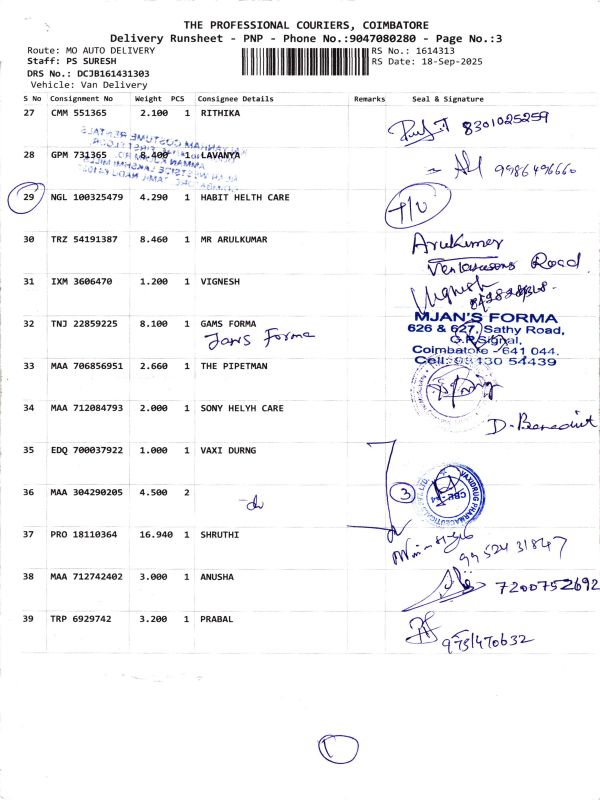 THE PROFESSIONAL COURIERS, COIMBATORE
Delivery Runsheet - PNP - Phone No.:9047080280 - Page No.:3
Route: MO AUTO DELIVERY RS No.: 1614313
Staff: PS SURESH RS Date: 18-Sep-2025
DRS No.: DCJB161431303
Vehicle: Van Delivery
S No Consignment No Weight PCS Consignee Details Remarks Seal & Signature
27 CMM 551365 2.100 1 RITHIKA 8301025259
28 GPM 731365 8.400 1 LAVANYA 9986496660
29 NGL 100325479 4.290 1 HABIT HELTH CARE
30 TRZ 54191387 8.460 1 MR ARULKUMAR Arulkumar
Road
31 IXM 3606470 1.200 1 VIGNESH Vignesh
32 TNJ 22859225 8.100 1 GAMS FORMA
Jans Forma
MJAN'S FORMA
626 & 627, Sathy Road,
G.P.Signal,
Coimbatore - 641 044.
Cell: 98430 54439
33 MAA 706856951 2.660 1 THE PIPETMAN
34 MAA 712084793 2.000 1 SONY HELYH CARE D. Benedict
35 EDQ 700037922 1.000 1 VAXI DURNG
36 MAA 304290205 4.500 2 -do 3
VAXIDRUG PHARMACEUTICALS PVT. LTD.
37 PRO 18110364 16.940 1 SHRUTHI 9952431847
38 MAA 712742402 3.000 1 ANUSHA 7200752692
39 TRP 6929742 3.200 1 PRABAL 9731470632